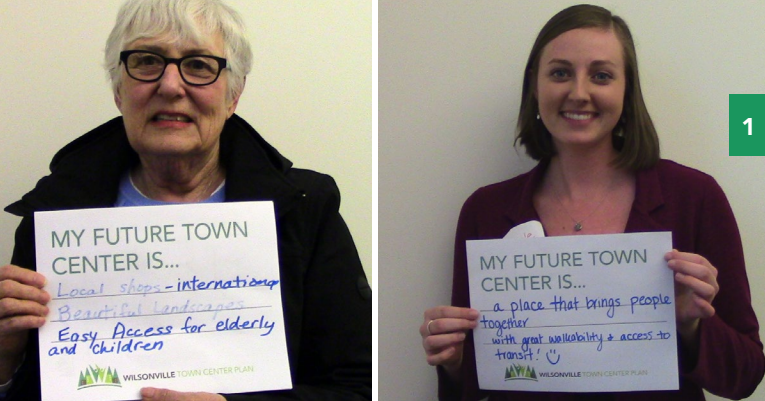 MY FUTURE TOWN
CENTER IS...
Local shops - international
Beautiful Landscapes
Easy Access for elderly
and children
WILSONVILLE TOWN CENTER PLAN
MY FUTURE TOWN
CENTER IS...
a place that brings people
together
with great walkability & access to
transit! :)
WILSONVILLE TOWN CENTER PLAN
1